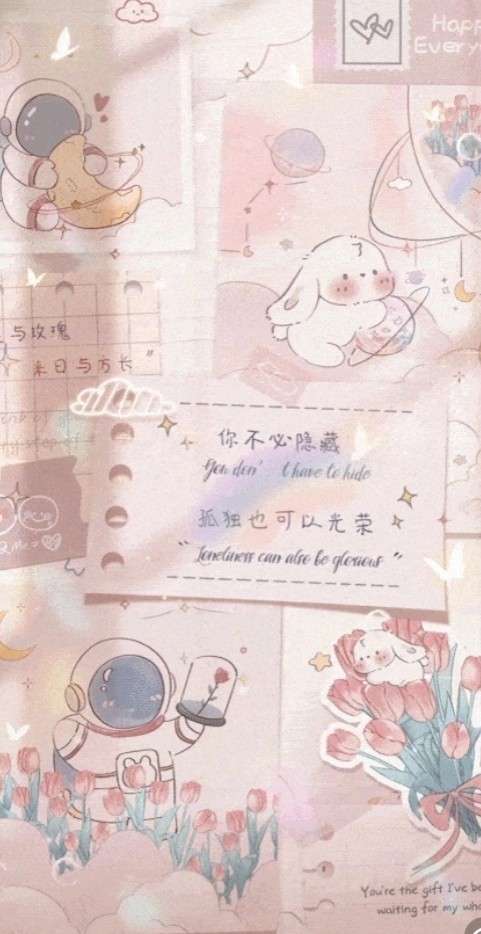 Happ
Every
与玫瑰
来日与方长"
你不必隐藏
You don't have to hide
孤独也可以光荣
"Loneliness can also be glorious"
You're the gift I've be
waiting for my who